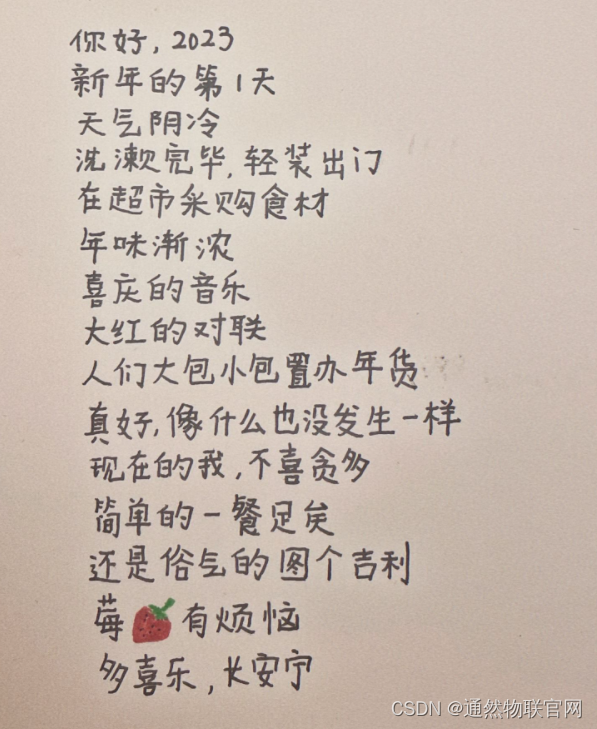 你好,2023
新年的第1天
天气阴冷
洗漱完毕,轻装出门
在超市采购食材
年味渐浓
喜庆的音乐
大红的对联
人们大包小包置办年货
真好,像什么也没发生一样
现在的我,不喜贪多
简单的一餐足矣
还是俗气的图个吉利
莓🍓有烦恼
多喜乐,长安宁
CSDN @通然物联官网